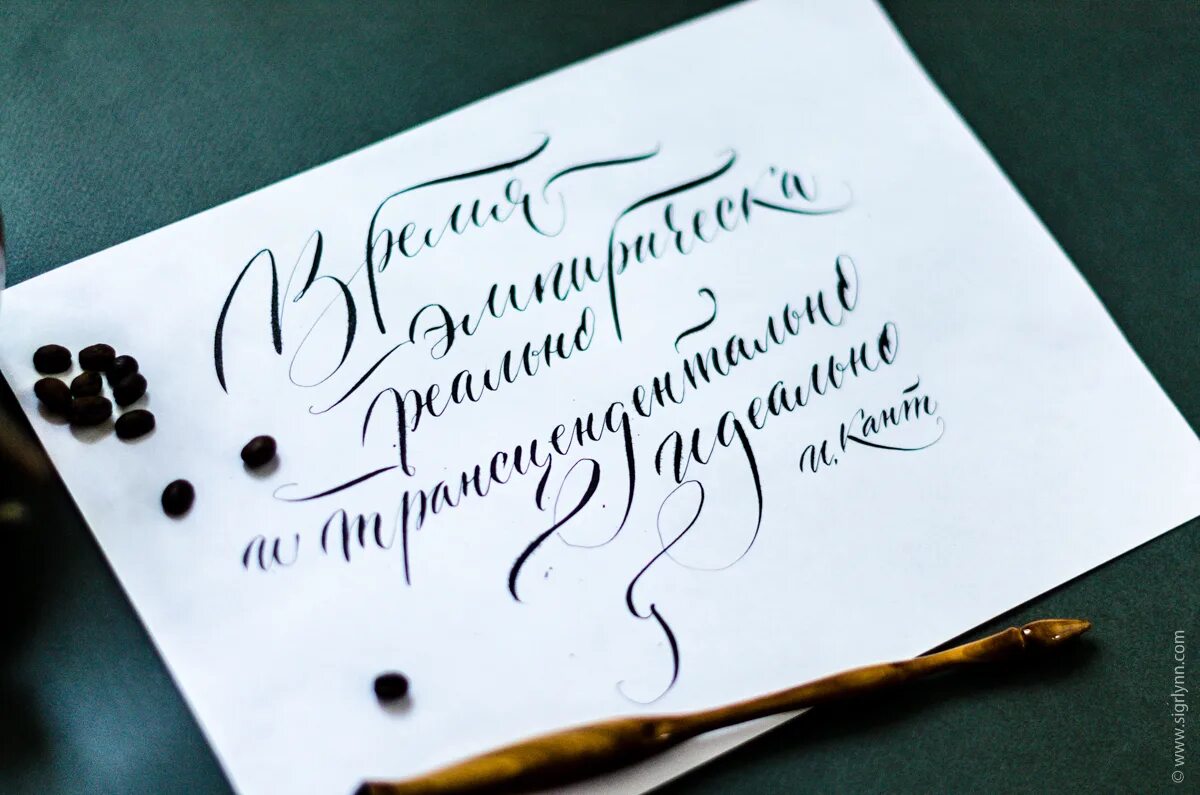 Время
эмпирическа
реально
и трансцендентально
идеально
и. Кант
© www.sigrlynn.com